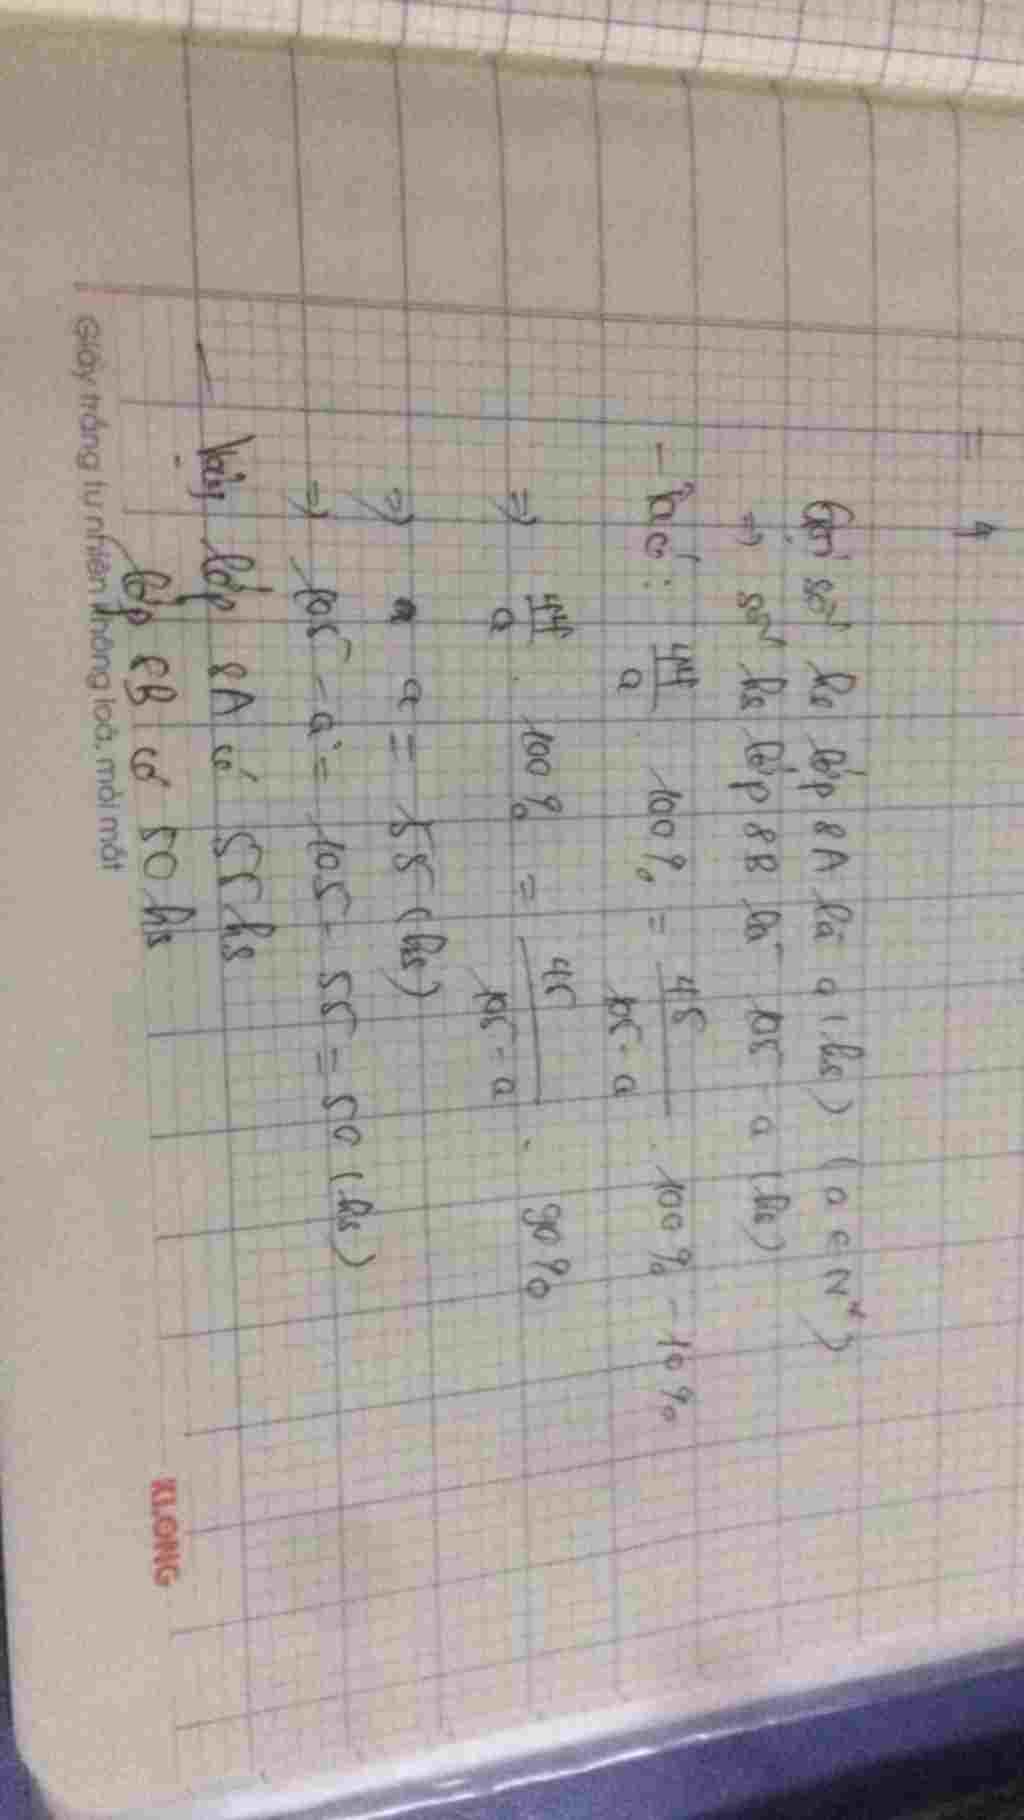 Gọi số hs lớp 8A là a (hs) (a ∈ N*)
=> số hs lớp 8B là 105 - a (hs)
- Ta có: 44/a . 100% = 45/105 - a . 100% - 10%
=> 44/a . 100% = 45/105 - a . 90%
=> a = 55 (hs)
=> 105 - a = 105 - 55 = 50 (hs)
Vậy lớp 8A có 55 hs
lớp 8B có 50 hs
Giấy trắng tự nhiên không loá, mỏi mắt
KLONG